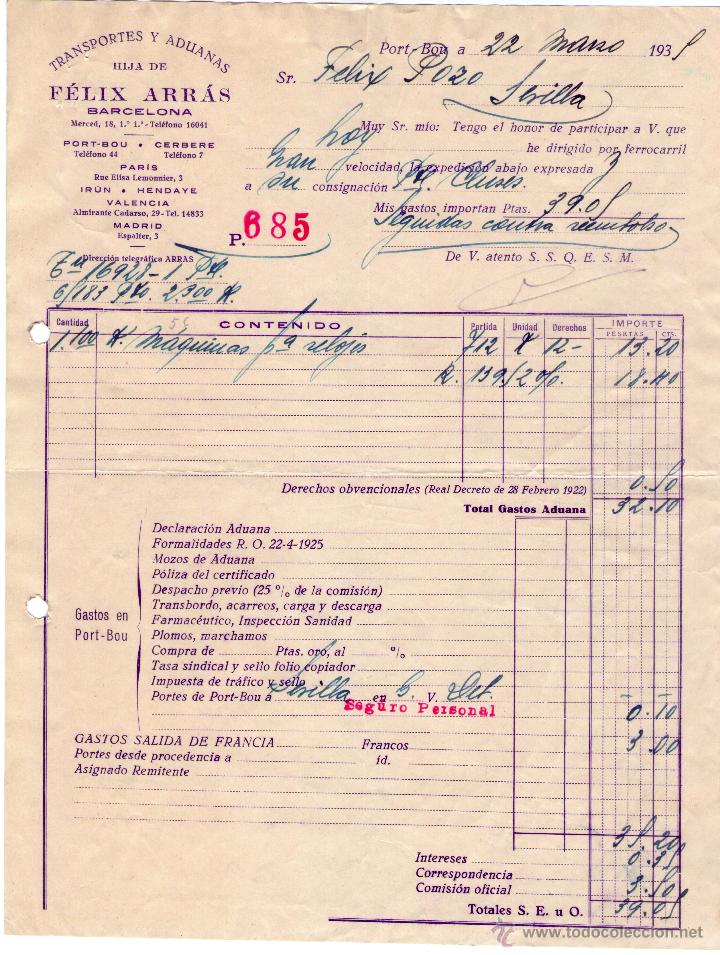 TRANSPORTES Y ADUANAS
HIJA DE
FÉLIX ARRÁS
BARCELONA
Merced, 18, 1.º 1.ª - Teléfono 16041
PORT-BOU • CERBERE
Teléfono 44 Teléfono 7
PARÍS
Rue Elisa Lemonnier, 3
IRÚN • HENDAYE
VALENCIA
Almirante Cadarso, 29 - Tel. 14833
MADRID
Espalter, 3
Dirección telegráfica ARRAS
Port-Bou a 22 Marzo 1935
Sr. Felix Pozo
Sevilla
Muy Sr. mío: Tengo el honor de participar a V. que
hoy he dirigido por ferrocarril
gran velocidad, la expedición abajo expresada
a su consignación
Mis gastos importan Ptas. 39.05
Seguidas contra reembolso
De V. atento S. S. Q. E. S. M.
P. 685
16923-1
6/183 2.300 K.
Cantidad CONTENIDO Partida Unidad Derechos IMPORTE
PESETAS CTS.
1.100 K. Maquinas pª relojes 712 K 12- 13.20
139.52 % 18.40
Derechos obvencionales (Real Decreto de 28 Febrero 1922) 0.50
Total Gastos Aduana 32.10
Gastos en Port-Bou
Declaración Aduana
Formalidades R. O. 22-4-1925
Mozos de Aduana
Póliza del certificado
Despacho previo (25 % de la comisión)
Transbordo, acarreos, carga y descarga
Farmacéutico, Inspección Sanidad
Plomos, marchamos
Compra de Ptas. oro, al %
Tasa sindical y sello folio copiador
Impuesta de tráfico y sello
Portes de Port-Bou a Sevilla en G. V. Det.
Seguro Personal 0.10
GASTOS SALIDA DE FRANCIA Francos 3.00
Portes desde procedencia a id.
Asignado Remitente
35.20
Intereses 0.35
Correspondencia
Comisión oficial 3.50
Totales S. E. u O. 39.05
www.todocoleccion.net